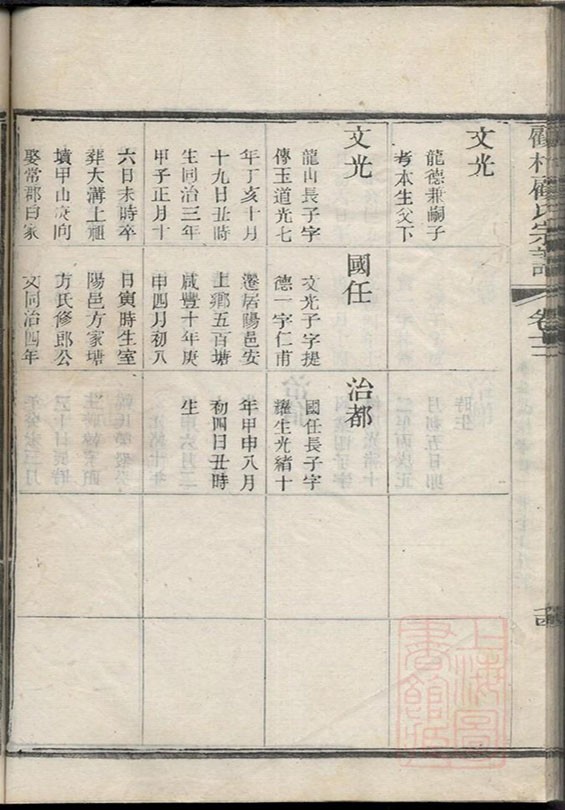 顧氏宗譜
卷十三
文光
龍德兼嗣子
考本生父下
文光
龍山長子字
傳玉道光七
年丁亥十月
十九日丑時
生同治三年
甲子正月十
六日未時卒
葬大溝上祖
墳甲山庚向
娶常郡白家
國任
文光子字提
德一字仁甫
遷居陽邑安
上鄉五百塘
咸豐十年庚
申四月初八
日寅時生室
陽邑方家塘
方氏修郎公
女同治四年
治都
國任長子字
耀生光緒十
年甲申八月
初四日丑時
生
上海圖
書館藏